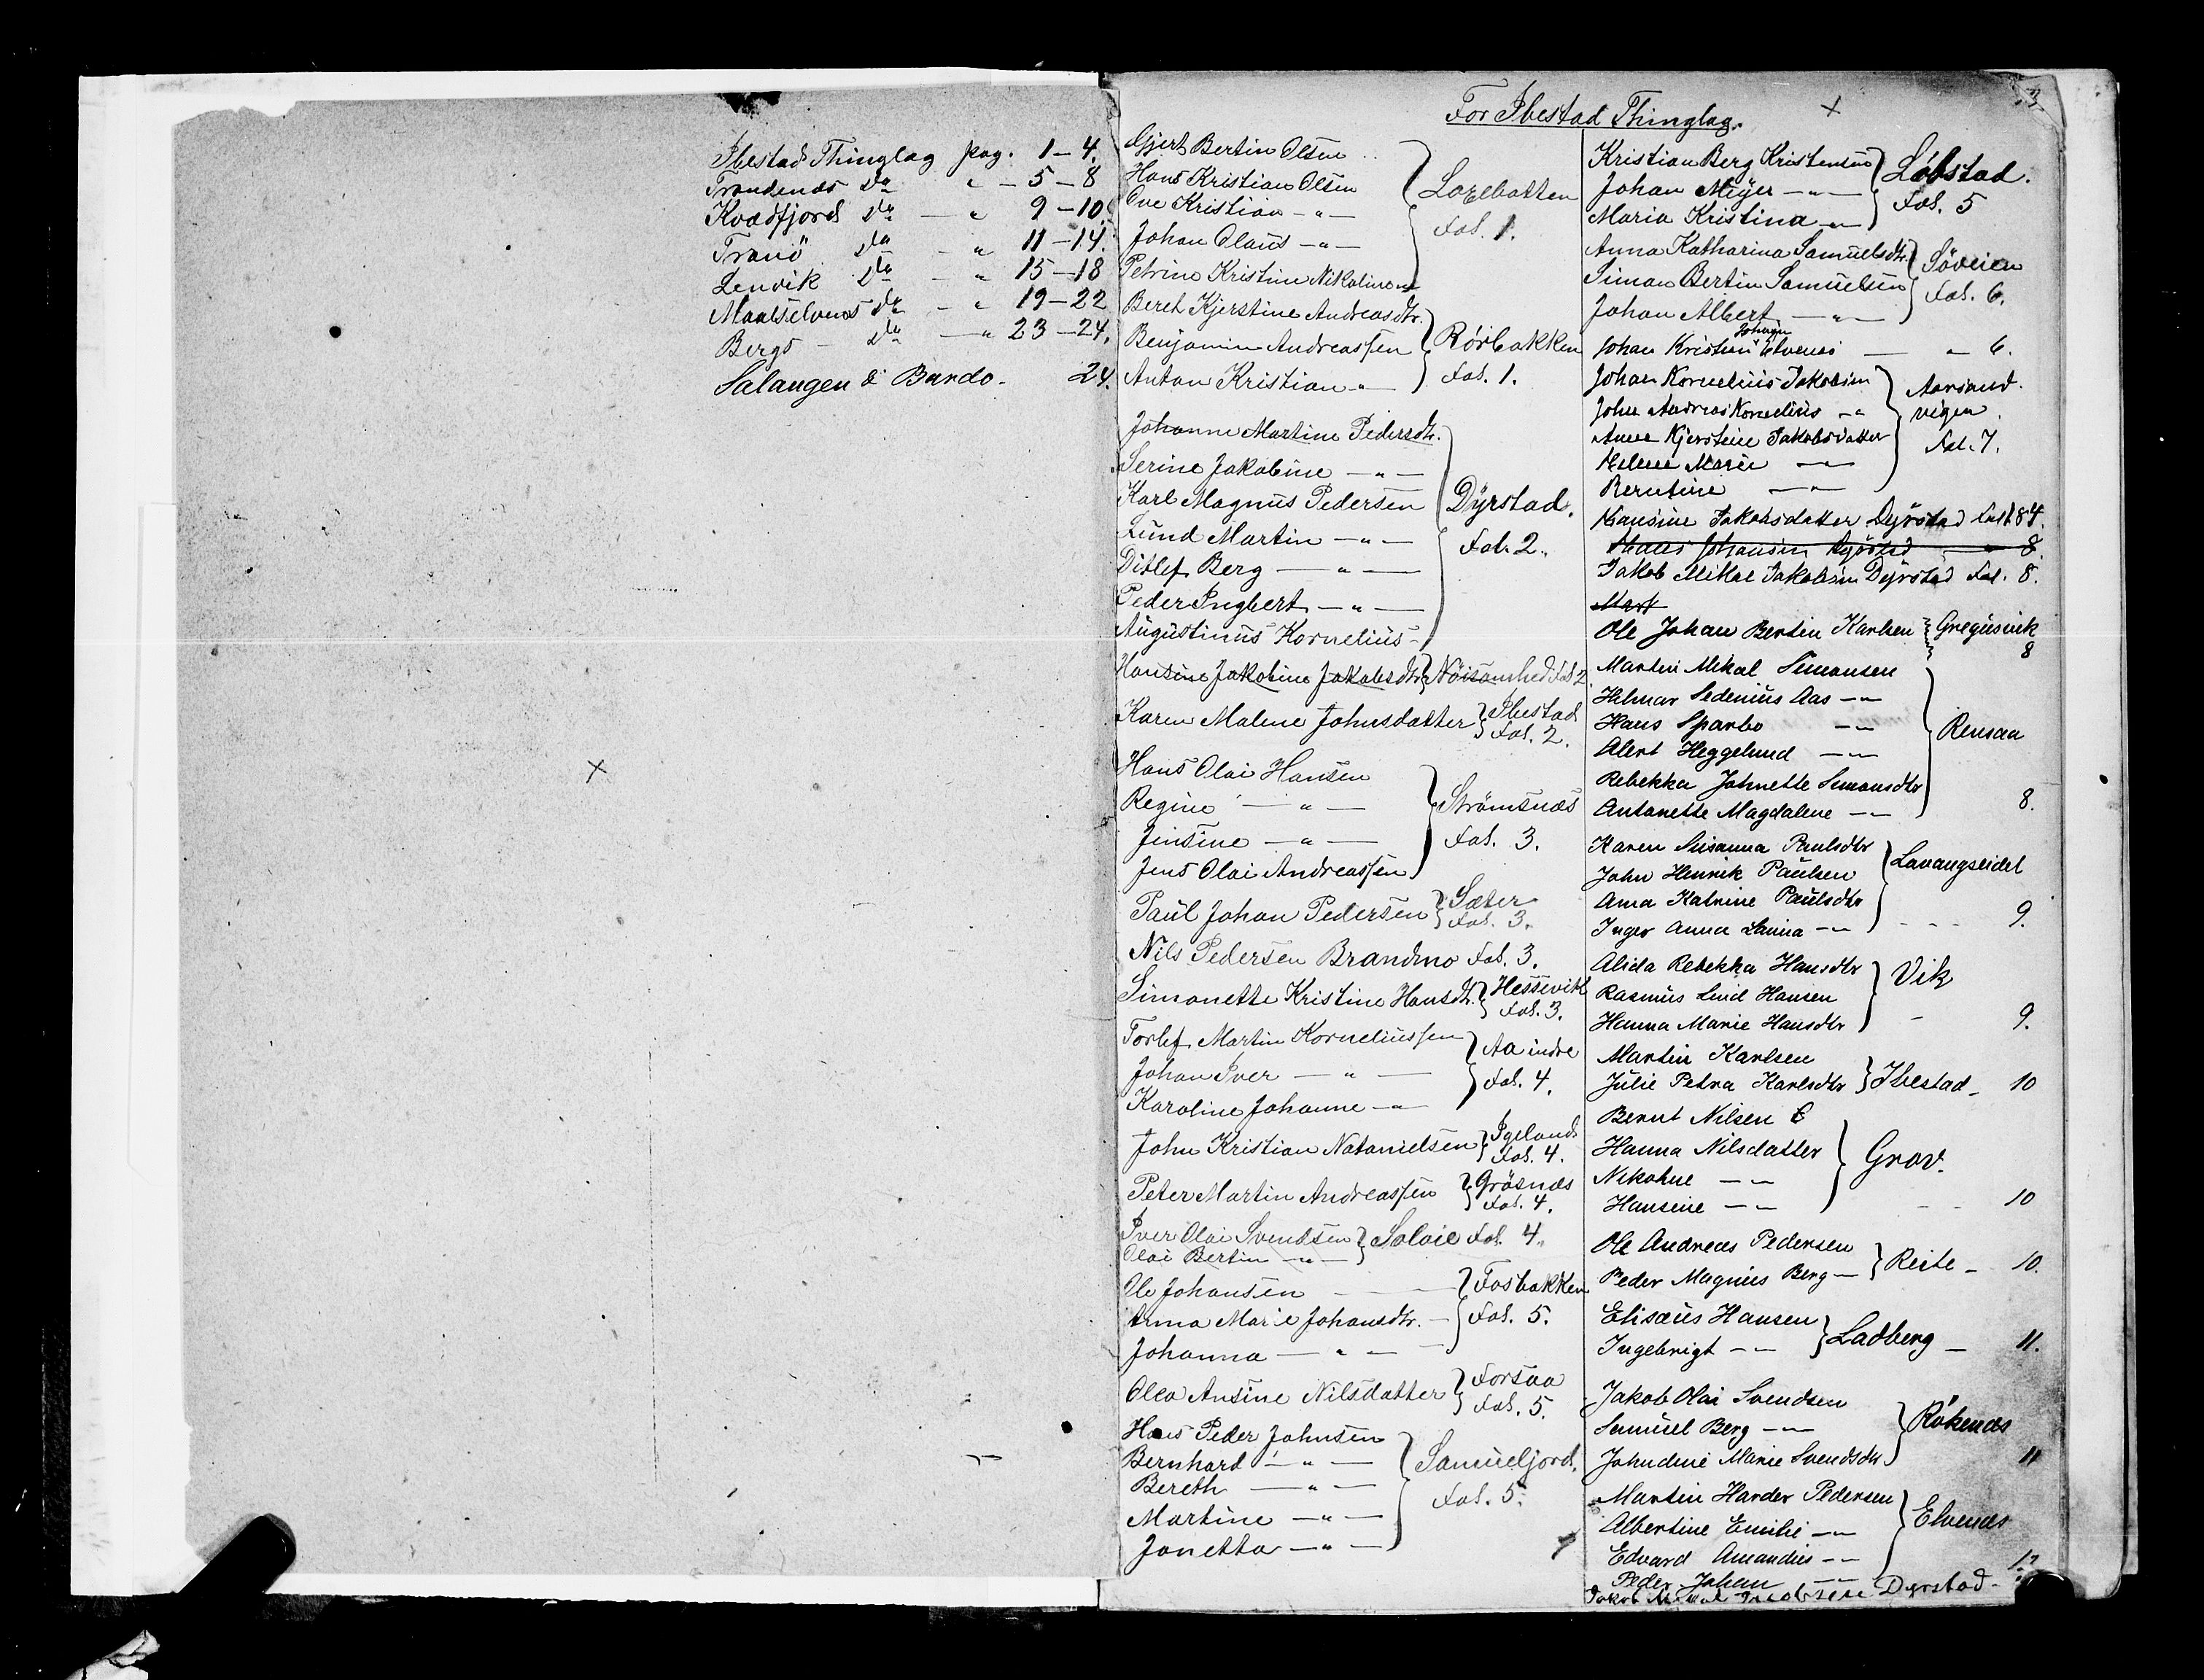 Ibestad Thinglag pag. 1 – 4.
Trondenæs do " – 5 – 8
Kvædfjord do – " 9 – 10.
Tranö do – " 11 – 14.
Lenvik do – " 15 – 18
Maalselvens do – " 19 – 22
Bergs – do – " 23 – 24.
Salangen & Bardo - 24.
For Ibestad Thinglag.
3
Gjert Bertin Olsen
Hans Kristian Olsen
Ove Kristian – " –
Johan Olaus – " –
Petrine Kristine Nikoline – " –
Fol. 1.
Bereth Kjerstine Andreasdtr.
Benjamin Andreassen
Anton Kristian – " –
Rörbakken
Fol. 1.
Johanne Martine Pedersdtr.
Serine Jakobine – " –
Karl Magnus Pedersen
Lund Martin – " –
Ditlef Berg – " –
Peder Ingbert – " –
Augustinus Kornelius –
Dyrstad.
Fol. 2.
Hansine Jakobine Jakobsdtr. Nöisomhed Fol 2
Karen Malene Johnsdatter Ibestad
Fol. 2.
Hans Olai Hansen
Regine – " –
Jensine – " –
Jens Olai Andreassen
Strömsnæs
Fol. 3.
Paul Johan Pedersen Sæter
Fol. 3.
Nils Pedersen Brandmo Fol. 3.
Simonette Kristine Hansdtr. Hessevik
Fol. 3.
Torlef Martin Korneliussen
Johan Iver – " –
Karoline Johanne – " –
Aa indre
Fol. 4.
John Kristian Natanielsen Igeland
Fol. 4.
Peter Martin Andreassen Gråsnæs
Fol. 4.
Iver Olai Svendsen
Olai Bertin – " –
Soløie Fol. 4.
Ole Johansen
Anna Marie Johansdtr. –
Johanna – " –
Fosbakken
Fol. 5.
Olea Ansine Nilsdatter Forsaa
Fol. 5.
Hans Peder Johnsen
Bernhard – " –
Bereth – " –
Martine – " –
Jonetta – " –
Samueljord.
Fol. 5.
Kristian Berg Kristensen
Johan Meyer – " –
Maria Kristina – " –
Löbstad.
Fol. 5
Anna Katharina Samuelsdtr.
Simon Bertin Samuelsen
Johan Albert – " –
Söveien
Fol. 6.
Johan
Johan Kristian Elvenes – " 6.
Johan Kornelius Jakobsen
John Andreas Kornelius – "
Anne Kjerstine Jakobsdatter
Helene Marie – " –
Berntine – " –
Aarsand
vigen.
Fol. 7.
Hansine Jakobsdatter Dyrstad Fol 184.
Hans Johansen Dyrstad – " 8.
Jakob Mikal Jakobsen Dyrstad Fol. 8.
Mart
Ole Johan Bertin Karlsen Gregusvik
8
Martin Mikal Simonsen
Hilmar Sedenius Aas – " –
Hans Sparbo – " –
Alert Heggelund – " –
Rebekka Johnette Simonsdtr
Antonette Magdalene – " –
Rensaa
8.
Karen Susanna Paulsdtr
John Henrik Paulsen
Anna Katrine Paulsdtr
Inger Anna Launa – " –
Lavangseidet
9.
Alida Rebekka Hansdtr
Rasmus Lind Hansen
Hanna Marie Hansdtr
Vik
9.
Martin Karlsen
Julie Petra Karlsdtr
Ibestad – 10
Bernt Nilsen
Hanna Nilsdatter
Nikoline – " –
Hansine – " –
Grov.
10
Ole Andreas Pedersen
Peder Magnus Berg –
Reite – 10.
Elisæus Hansen
Ingebrigt – " –
Ladberg – 11.
Jakob Olai Svendsen
Samuel Berg – " –
Johndine Marie Svendsdtr
Rökenæs
11
Martin Harder Pedersen
Albertine Emilie – " –
Edvard Amandus – " –
Peder Johan – " –
Elvenæs
Jakob Mikal Jacobsen Dyrstad –